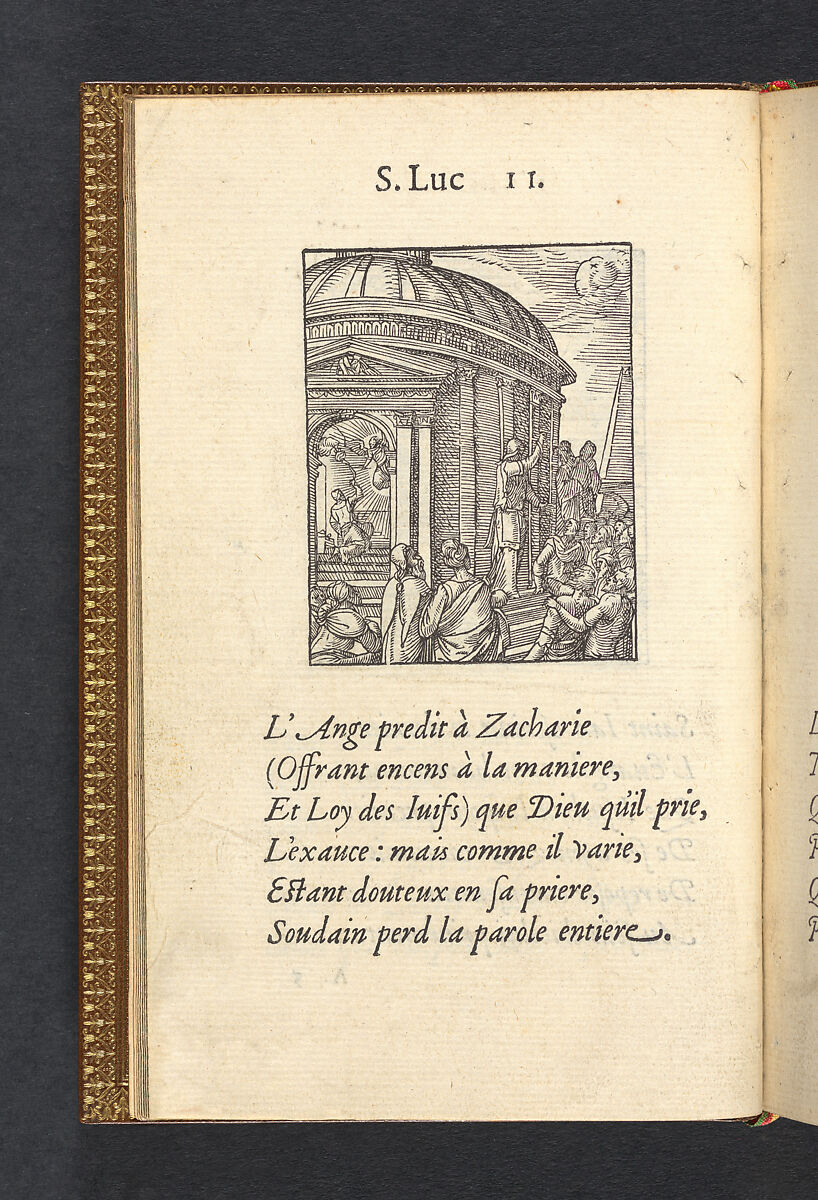 S. Luc II.
L'Ange predit à Zacharie
(Offrant encens à la maniere,
Et Loy des Iuifs) que Dieu qu'il prie,
L'exauce : mais comme il varie,
Estant douteux en ſa priere,
Soudain perd la parole entiere.